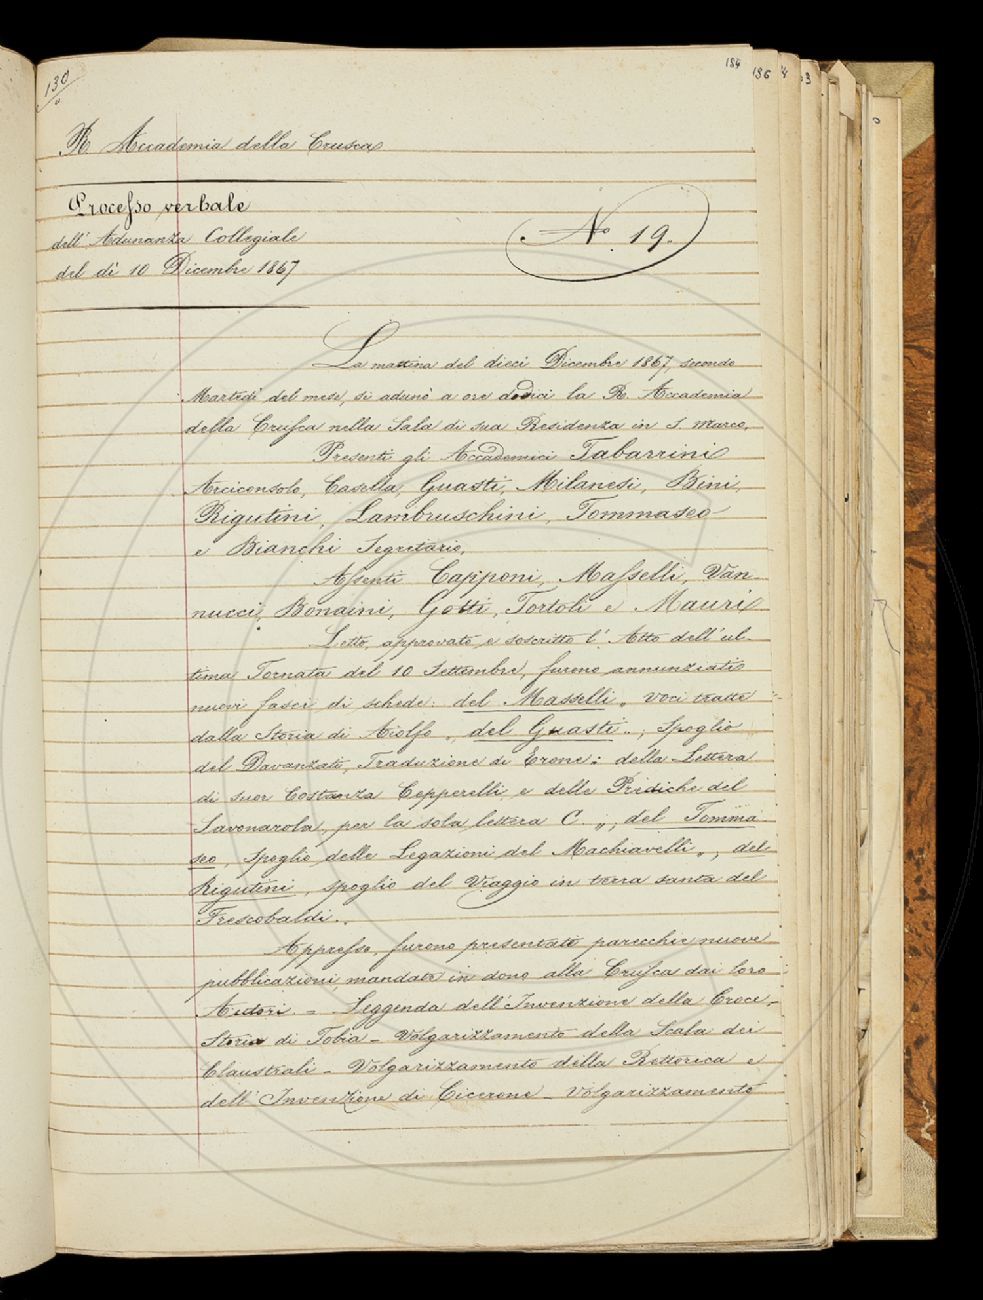 130
184
186
R. Accademia della Crusca
Processo verbale
dell' Adunanza Collegiale
del dì 10 Dicembre 1867
N.o 19.
La mattina del dieci Dicembre 1867, secondo
Martedì del mese, si adunò a ore dodici la R. Accademia
della Crusca nella Sala di sua Residenza in S. Marco.
Presenti gli Accademici Tabarrini
Arciconsolo, Casella, Guasti, Milanesi, Bini,
Rigutini, Lambruschini, Tommaseo
e Bianchi Segretario.
Assenti Capponi, Masselli, Van-
nucci, Bonaini, Gotti, Tortoli e Mauri
Letto, approvato, e soscritto l' Atto dell' ul-
tima Tornata del 10 Settembre, furono annunziati
nuovi fasci di schede: del Masselli, voci tratte
dalla Storia di Aiolfo, del Guasti, Spoglio
del Davanzati, Traduzione di Erone; della Lettera
di suor Costanza Cepperelli, e delle Prediche del
Savonarola, per la sola lettera C., del Tomma
seo, Spoglio delle Legazioni del Machiavelli, del
Rigutini, spoglio del Viaggio in terra santa del
Frescobaldi.
Appresso, furono presentate parecchie nuove
pubblicazioni mandate in dono alla Crusca dai loro
Autori. = Leggenda dell' Invenzione della Croce -
Storia di Tobia - Volgarizzamento della Scala dei
Claustrali - Volgarizzamento della Rettorica e
dell' Invenzione di Cicerone - Volgarizzamento